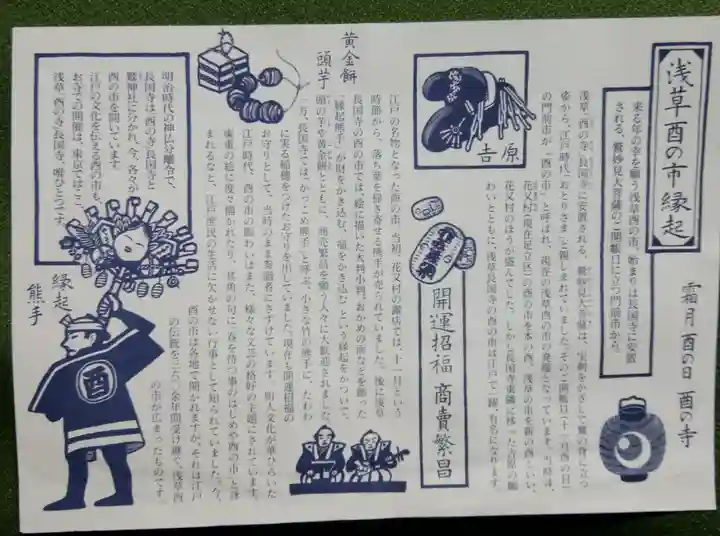 浅草酉の市縁起
霜月 酉の日 酉の寺
来る年の幸を願う浅草酉の市、始まりは長国寺に安置
される、鷲妙見大菩薩のご開帳日に立つ門前市から。
浅草酉の寺・長国寺に安置される、鷲妙見大菩薩は、宝剣をかざして鷲の背に立つ
姿から、江戸時代「おとりさま」と親しまれていました。そのご開帳日(十一月酉の日)
の門前市が「酉の市」と呼ばれ、現在の浅草酉の市の発端となっています。当時は、
花又村(現在足立区)の酉の市を本の酉、浅草の市を新の酉といい、
花又村のほうが盛んでした。しかし長国寺東隣に移った吉原の賑
わいとともに、浅草長国寺の酉の市は江戸で一躍、有名になります
吉原
開運招福 商賣繁昌
江戸の名物となった酉の市、当初、花又村の露店では、十一月という
時節から、落ち葉を掻き寄せる熊手が売られていました。後に浅草
長国寺の酉の市では、絵に描いた大判小判、おかめの面などを飾った
「縁起熊手」が財をかき込む、福をかき込むという縁起をかついで、
頭の芋や黄金餅とともに、商売繁昌を願う人々に大歓迎されました
一方、長国寺では、かっこめ熊手と呼ぶ、小さな竹の熊手に、たわわ
に実る稲穂をつけたお守りを出していました。現在も開運招福の
お守りとして、当時のまま参詣者にさずけています。町人文化が華ひらいた
江戸時代、酉の市の賑わいはまた、様々な文芸の格好の主題にされています。
廣重の絵に度々描かれたり、其角の句に「春を待つ事のはじめや酉の市」と詠
まれるなど、江戸庶民の生活に欠かせない行事として知られていました。今、
酉の市は各地で開かれますが、それは江戸
の伝統を三百余年間受け継ぐ、浅草酉
の市が広まったものです。
黄金餅
頭芋
明治時代の神仏分離令で、
長国寺は、酉の寺長国寺と
鷲神社に分かれ、今、各々が
酉の市を開いています
江戸の文化を伝える酉の市も、
お寺での開催は、東京ではここ、
浅草「酉の寺」長国寺、唯ひとつです。
縁起
熊手
酉